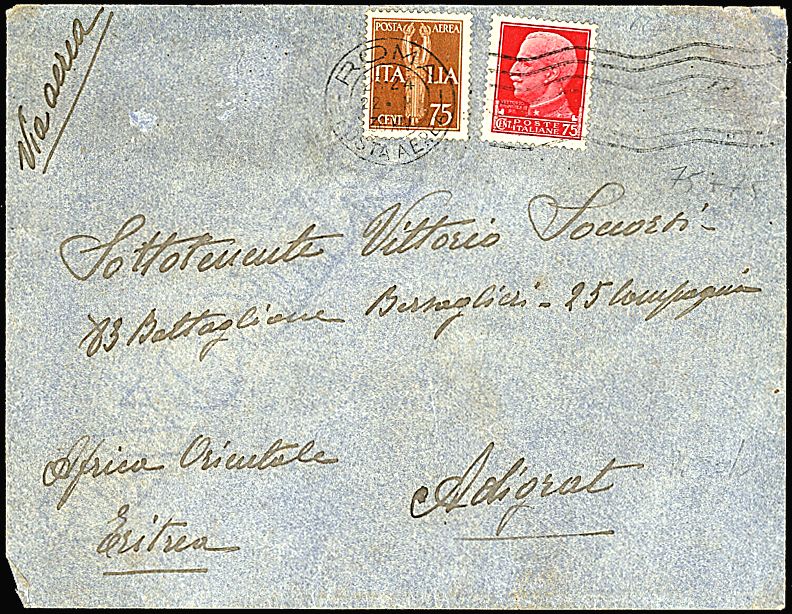 Via aerea
POSTA AEREA
ITALIA
CENT. 75
POSTE
CENT. ITALIANE 75
ROMA
POSTA AEREA
75+75
Sottotenente Vittorio Soccorsi -
83 Battaglione Bersaglieri - 25 Compagnia
Africa Orientale
Adigrat
Eritrea